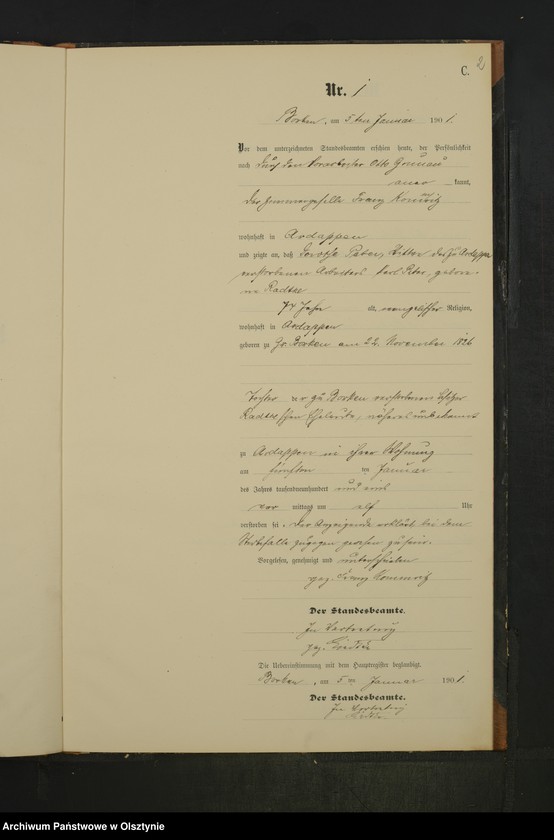 C.
2
Nr. 1
Borken, am 5ten Januar 1901.
Vor dem unterzeichneten Standesbeamten erschien heute, der Persönlichkeit
nach durch den Vorarbeiter Otto
aner kannt,
der Zimmergeselle Franz
wohnhaft in Ardappen
und zeigte an, daß Peter, Wittwe des zu Ardappen
verstorbenen Arbeiters Karl Peter, gebore-
ne Radtke
74 Jahr alt, evangelischer Religion,
wohnhaft in Ardappen
geboren zu Gr. Borken am 22. November 1826
Tochter der zu Borken verstorbenen
Radtke'schen Eheleute, näheres unbekannt
zu Ardappen in ihrer Wohnung
am fünften ten Januar
des Jahres tausendneunhundert und eins
vor mittags um elf Uhr
verstorben sei. Der Anzeigende erklärt bei dem
Sterbefalle zugegen gewesen zu sein.
Vorgelesen, genehmigt und unterschrieben
gez. Franz
Der Standesbeamte.
In Vertretung
gez.
Die Uebereinstimmung mit dem Hauptregister beglaubigt.
Borken, am 5ten Januar 1901.
Der Standesbeamte.
In Vertretung
Archiwum Państwowe w Olsztynie